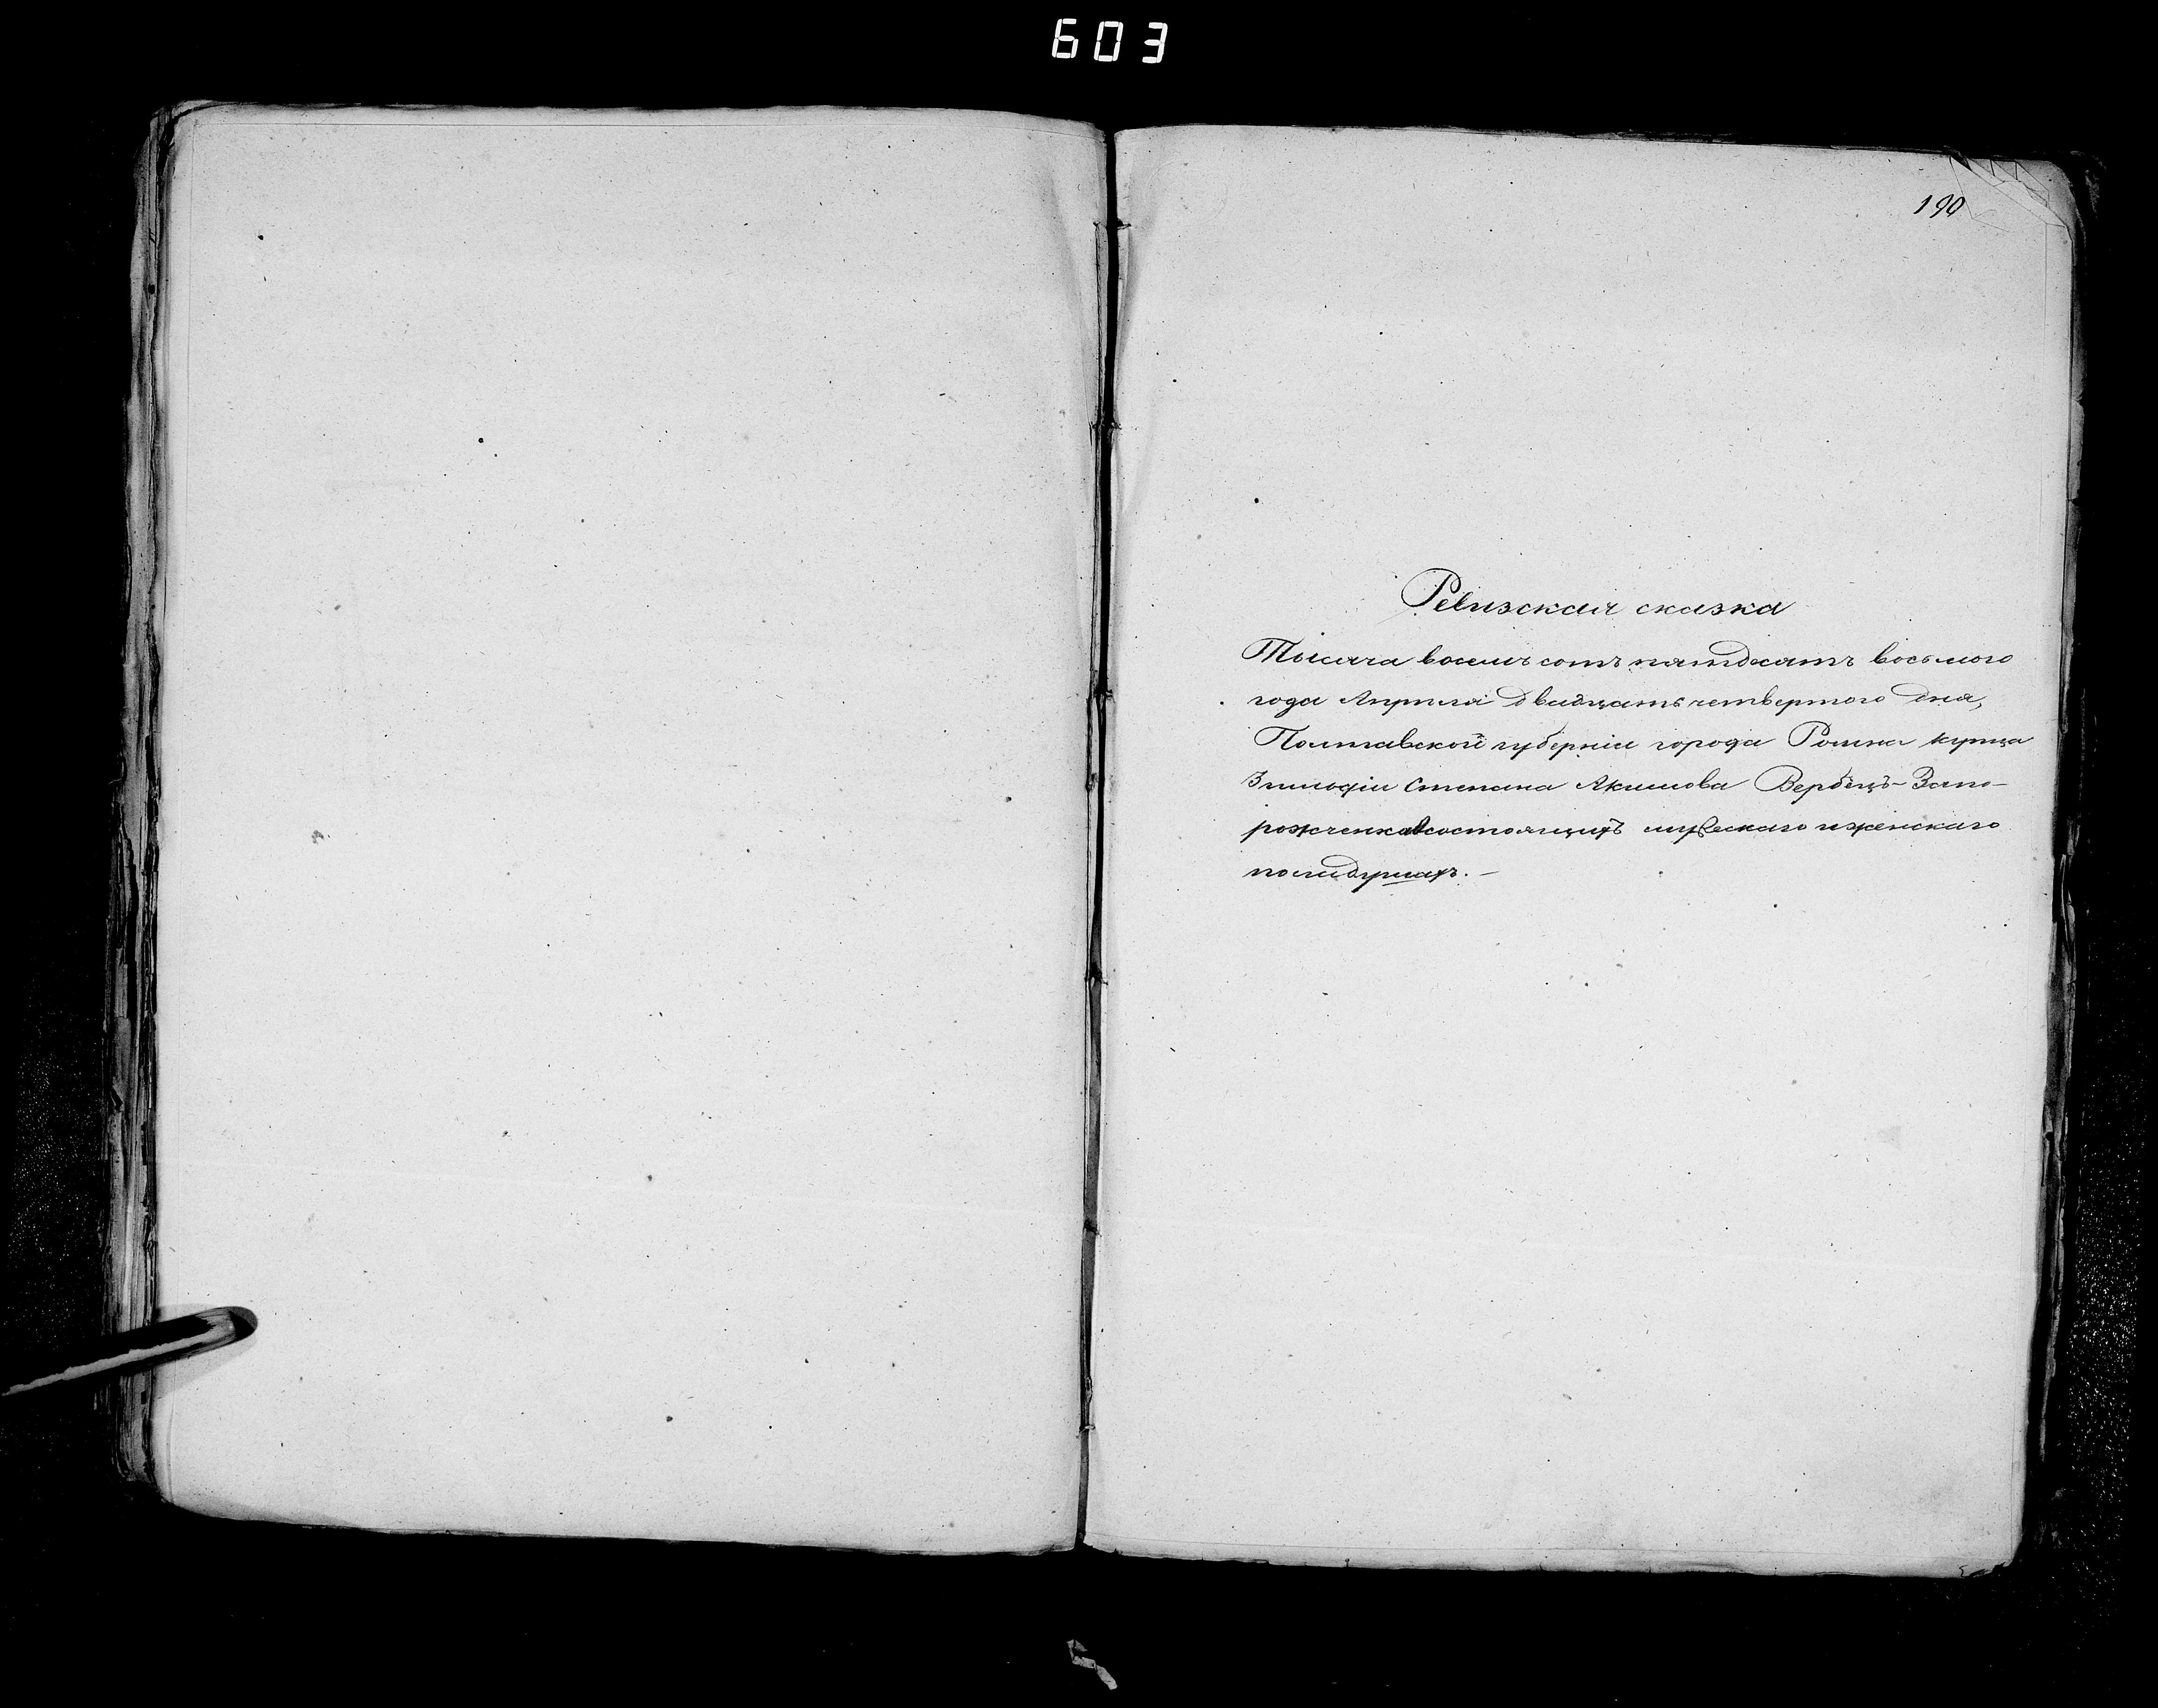 603
190
Ревизская сказка
Тысяча восемь сотъ пятдесятъ восьмого
года Апреля двадцать четвертого дня,
Полтавской губерніи города Ромна купца
3 гильдіи Степана Акимова Вербецъ-Запо-
рожченка о состоящихъ мужескаго и женскаго
пола душахъ. —